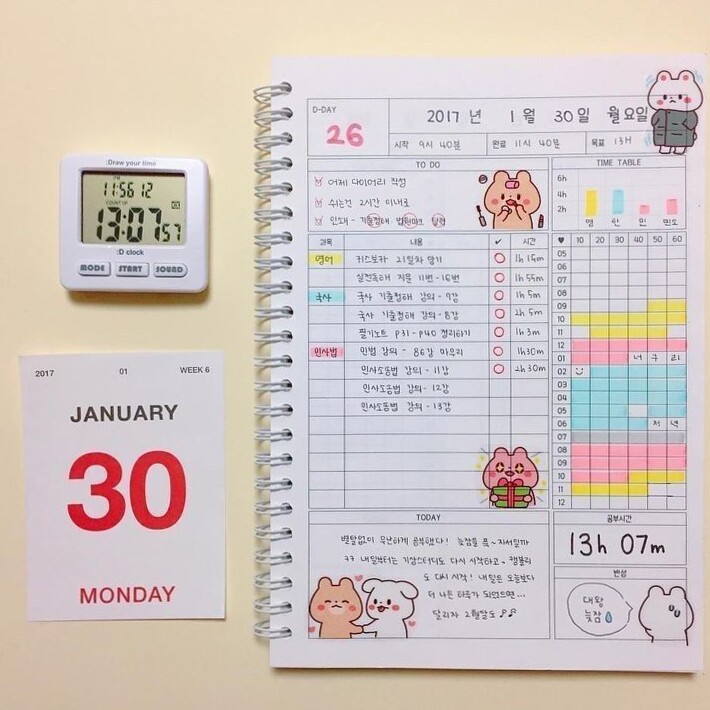 :Draw your time
PM
11:56 12
COUNT UP
13:07 57
:D clock
MODE START SOUND
2017 01 WEEK 6
JANUARY
30
MONDAY
D-DAY
26
2017 년 1 월 30 일 월요일
시작 9시 40분 완료 11시 40분 목표 13H
TO DO
어제 다이어리 작성
쉬는건 2시간 이내로
인쇄 - 기출정태 법원마크 달력
TIME TABLE
6h
4h
2h
영 한 민 민도
과목 내용 ✓ 시간
영어 키스보카 21일차 암기 1h 15m
실전독해 지문 11번 - 16번 1h 55m
국사 국사 기출정태 강의 - 7강 1h 5m
국사 기출정태 강의 - 8강 2h 5m
필기노트 p31 - p40 정리하기 1h 3m
민사법 민법 강의 - 86강 마무리 1h30m
민사소송법 강의 - 11강 2h 30m
민사소송법 강의 - 12강
민사소송법 강의 - 13강
♥ 10 20 30 40 50 60
05
06
07
08
09
10
11
12
01 너 구 리
02
03
04
05
06 저 녁
07
08
09
10
11
12
TODAY
별탈없이 무난하게 공부했다! 늦잠을 푹~ 자서일까
ㅋㅋ 내일부터는 기상스터디도 다시 시작하고~ 캠블리
도 다시 시작! 내일은 오늘보다
더 나은 하루가 되었으면...
달리자 2월달도 ♪♪
공부시간
13h 07m
반성
대왕
늦잠